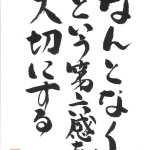 なんとなく
という第六感を
大切にする